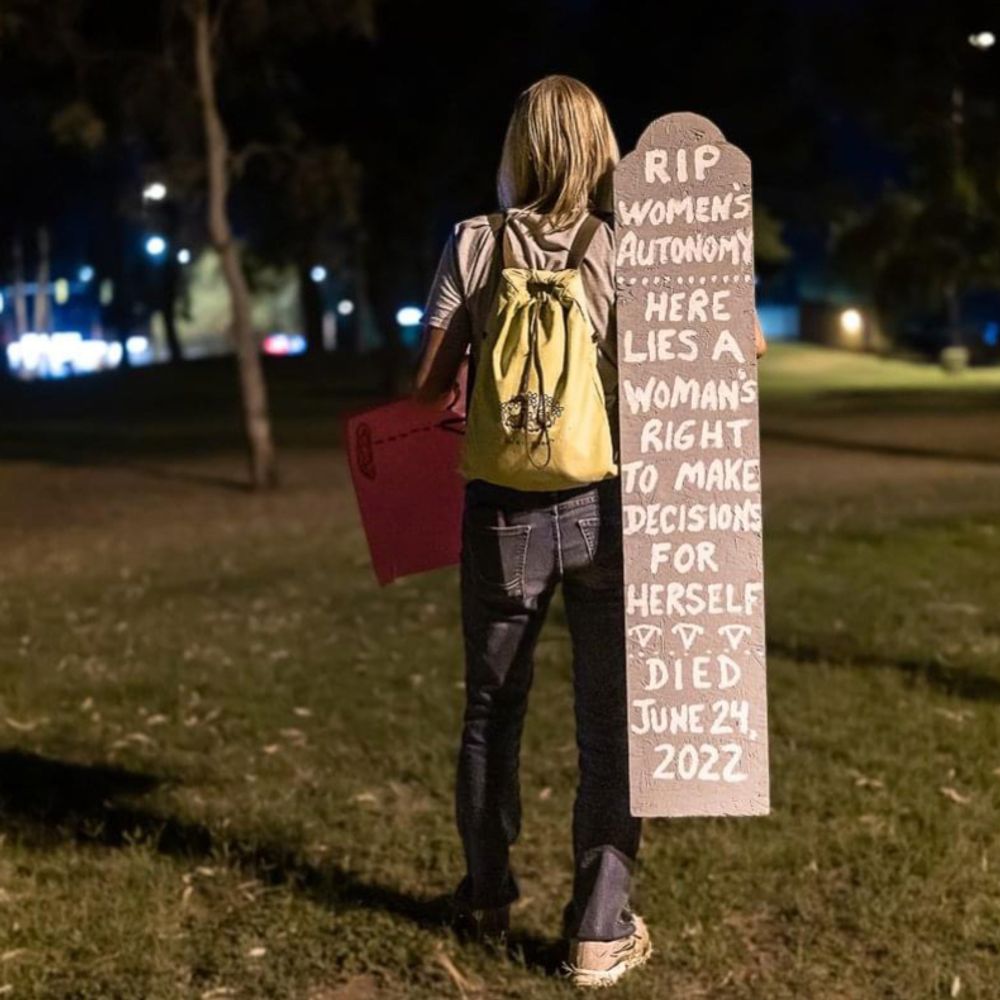 RIP
WOMEN'S
AUTONOMY
HERE
LIES A
WOMAN'S
RIGHT
TO MAKE
DECISIONS
FOR
HERSELF
DIED
JUNE 24,
2022